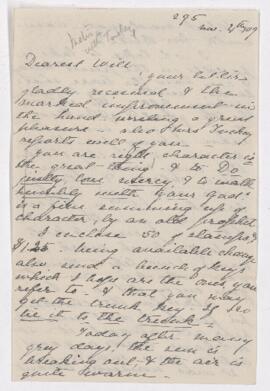 295
Nov. 2/09
Dearest Will
your letter
gladly received & the
marked improvement in
the hand writing a great
pleasure - also Mrs
reports well of you.
You are right, character is
the great thing, & to Do
justly, love mercy, & to walk
humbly with your God -
is a fine summing up of
character, by an old prophet
I enclose 50 stamps &
$1.25. being available change
also send a bunch of keys
which I hope are the ones you
refer to & that you may
get the trunk key. If so
tie it to the trunk.
Today after many
grey days the sun is
breaking out, & the air is
quite warm.